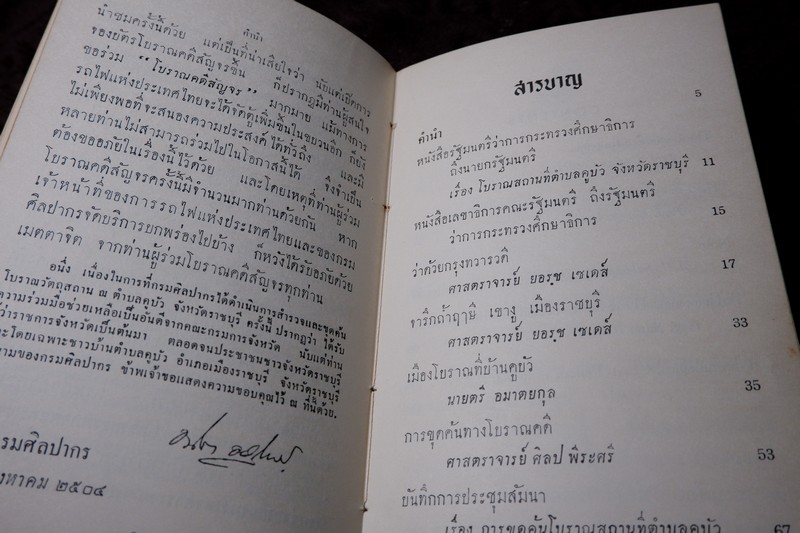 คำนำ
นำชมครั้งนี้ด้วย แต่เป็นที่น่าเสียใจว่า นับแต่เปิดการ
จองบัตรโบราณคดีสัญจรขึ้น ก็ปรากฏมีท่านผู้สนใจ
ขอร่วม “โบราณคดีสัญจร” มากมาย แม้ทางการ
รถไฟแห่งประเทศไทยจะได้จัดตู้เพิ่มขึ้นในขบวนอีก ก็ยัง
ไม่เพียงพอที่จะสนองความประสงค์ ได้ทั่วถึง และมี
หลายท่านไม่สามารถร่วมไปในโอกาสนี้ได้ จึงจำเป็น
ต้องขออภัยในเรื่องนี้ไว้ด้วย และโดยเหตุที่ท่านผู้ร่วม
โบราณคดีสัญจรครั้งนี้มีจำนวนมากท่านด้วยกัน หาก
เจ้าหน้าที่ของการรถไฟแห่งประเทศไทยและของกรม
ศิลปากรจัดบริการบกพร่องไปบ้าง ก็หวังได้รับอภัยด้วย
เมตตาจิต จากท่านผู้ร่วมโบราณคดีสัญจรทุกท่าน
อนึ่ง เนื่องในการที่กรมศิลปากรได้ดำเนินการสำรวจและขุดค้น
โบราณวัตถุสถาน ณ ตำบลคูบัว จังหวัดราชบุรี ครั้งนี้ ปรากฏว่า ได้รับ
ความร่วมมือช่วยเหลือเป็นอันดีจากคณะกรมการจังหวัด นับแต่ท่าน
ว่าราชการจังหวัดเป็นต้นมา ตลอดจนประชาชนชาวจังหวัดราชบุรี
ะโดยเฉพาะชาวบ้านตำบลคูบัว อำเภอเมืองราชบุรี จังหวัดราชบุรี
ามของกรมศิลปากร ข้าพเจ้าขอแสดงความขอบคุณไว้ ณ ที่นี้ด้วย.
รมศิลปากร
งหาคม ๒๕๐๔
สารบาญ
คำนำ 5
หนังสือรัฐมนตรีว่าการกระทรวงศึกษาธิการ
ถึงนายกรัฐมนตรี
เรื่อง โบราณสถานที่ตำบลคูบัว จังหวัดราชบุรี 11
หนังสือเลขาธิการคณะรัฐมนตรี ถึงรัฐมนตรี
ว่าการกระทรวงศึกษาธิการ 15
ว่าด้วยกรุงทวารวดี
ศาสตราจารย์ ยอร์ช เซเดส์ 17
จารึกถ้ำฤาษี เขางู เมืองราชบุรี
ศาสตราจารย์ ยอร์ช เซเดส์ 33
เมืองโบราณที่บ้านคูบัว
นายตรี อมาตยกุล 35
การขุดค้นทางโบราณคดี
ศาสตราจารย์ ศิลป พีระศรี 53
บันทึกการประชุมสัมนา
เรื่อง การขุดค้นโบราณสถานที่ตำบลคูบัว 67